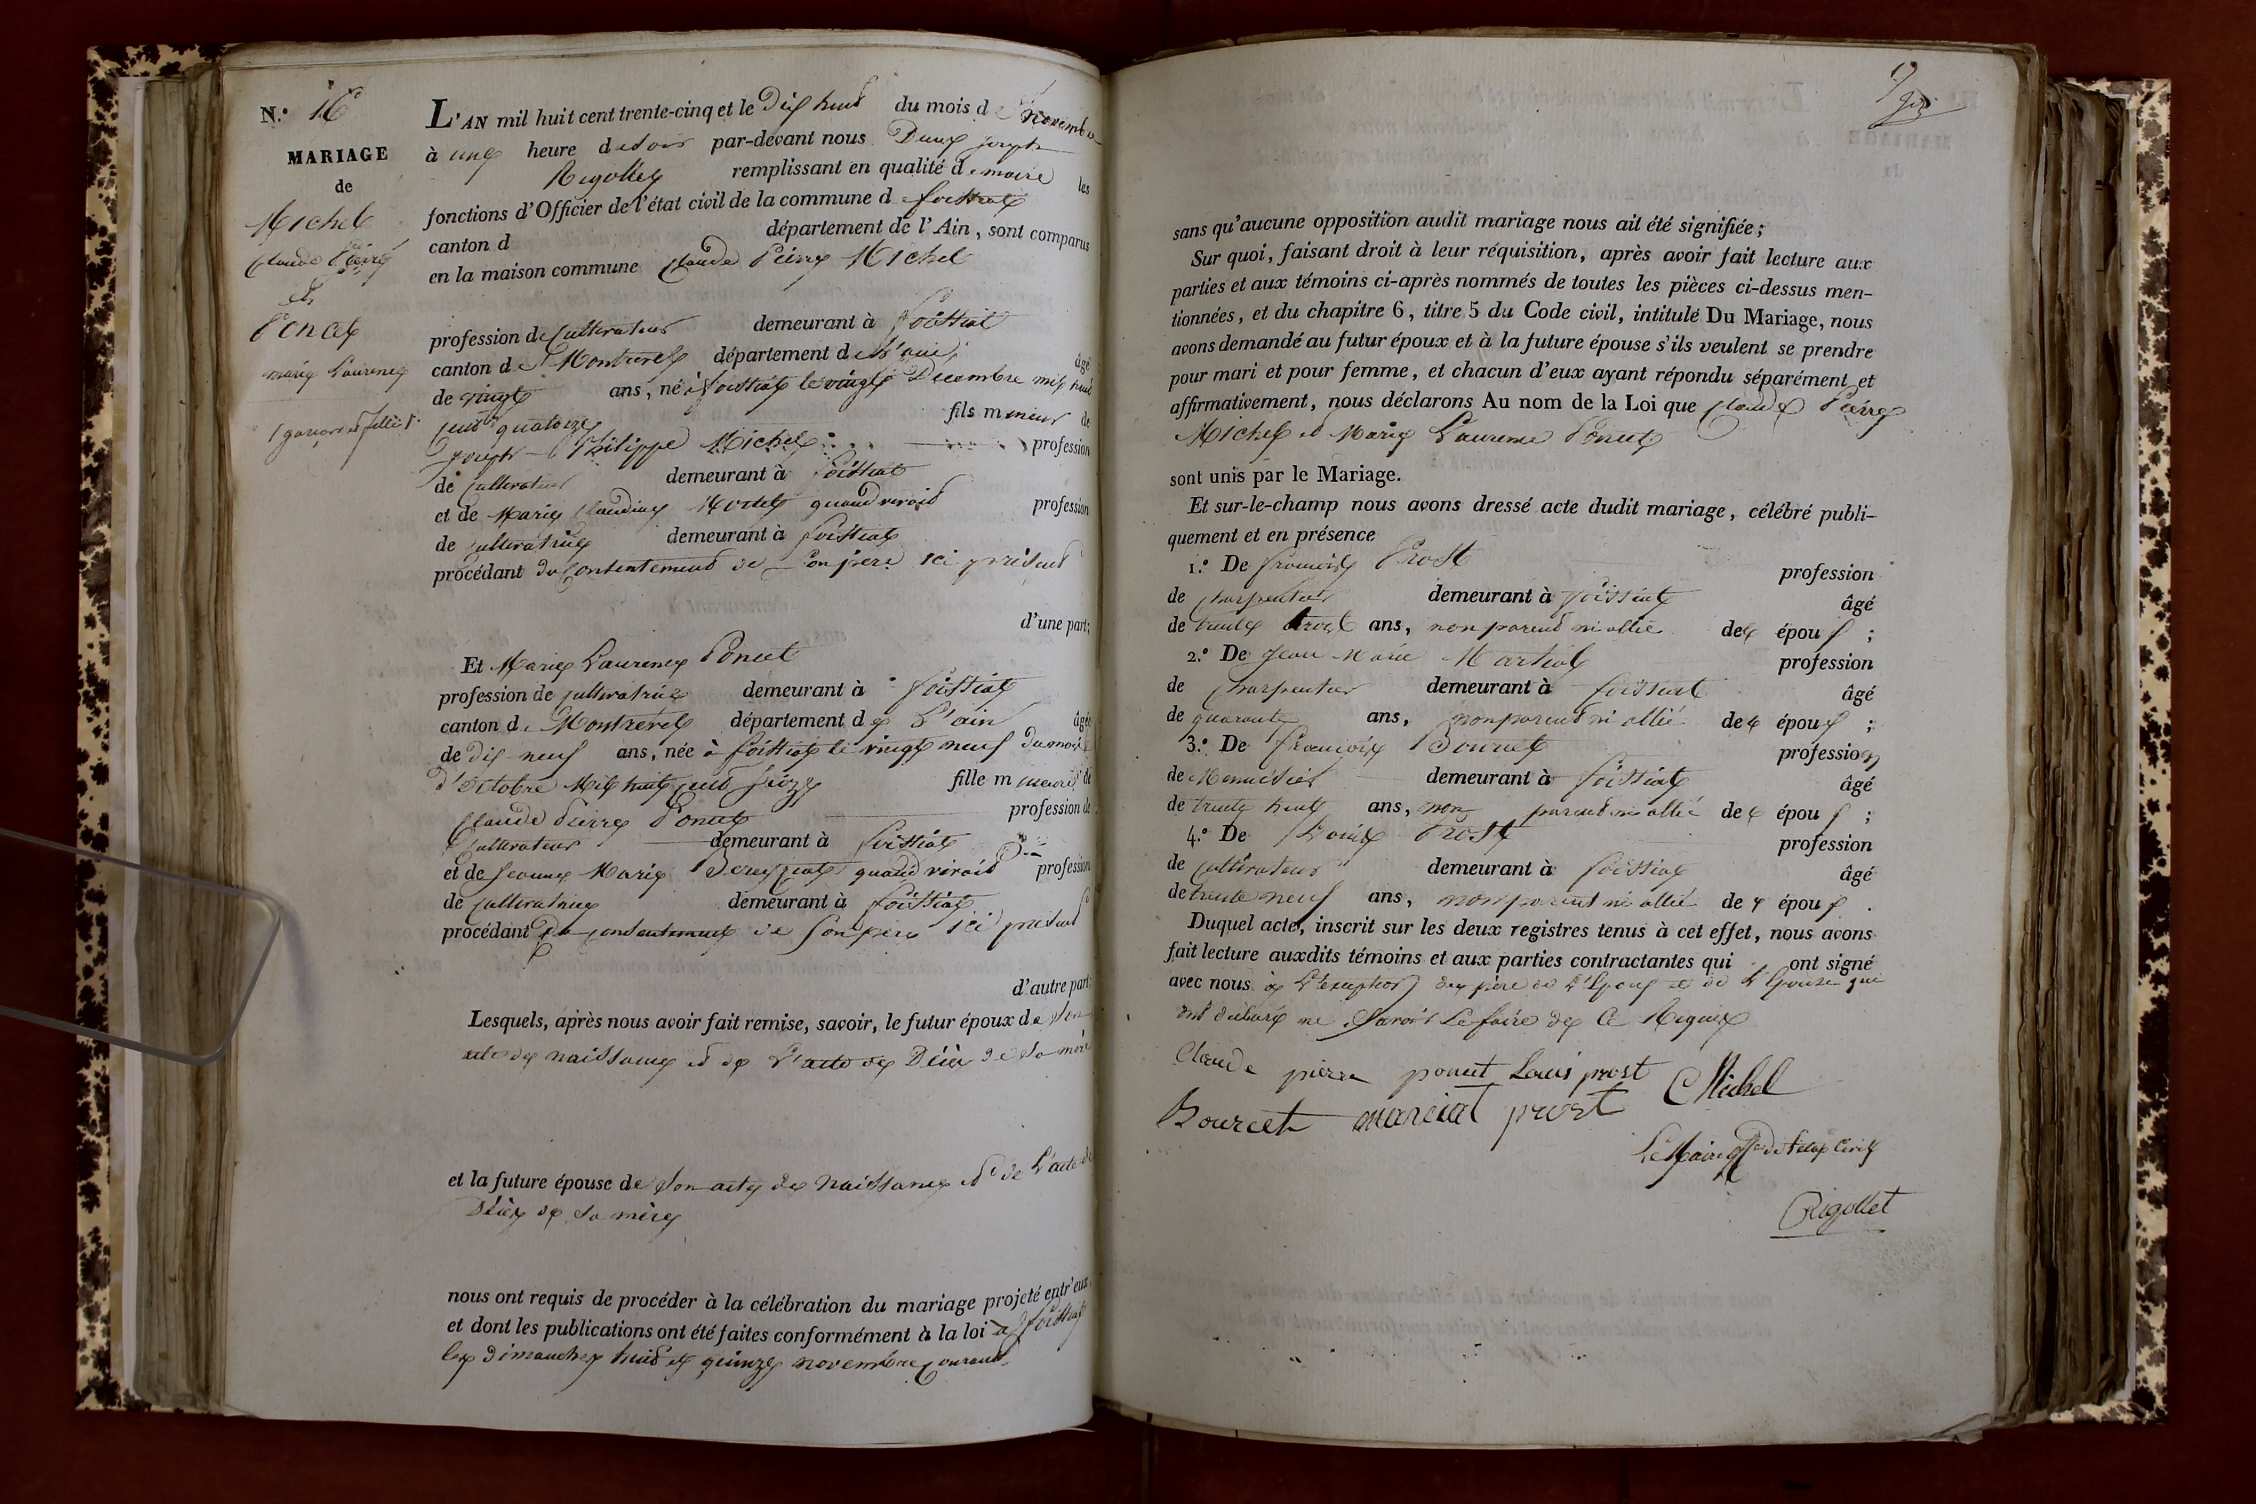 N.º 16
MARIAGE
de
Michel
Claude Pierre
et
Poncet
marie Laurence
1 garçon et fille 1.
L'AN mil huit cent trente-cinq et le Dix huit du mois de novembre
à une heure du soir par-devant nous Denis joseph
Rigollet remplissant en qualité de maire les
fonctions d'Officier de l'état civil de la commune d foissiat
canton d département de l'Ain, sont comparus
en la maison commune Claude Pierre Michel
profession de Cultivateur demeurant à foissiat
canton de Montrevel département de L'ain âgé
de vingt ans, né à foissiat le vingt Decembre mil huit
cent quatorze fils mineur de
joseph Philippe Michel profession
de Cultivateur demeurant à foissiat
et de Marie Claudine quand vivait profession
de cultivatrice demeurant à foissiat
procédant du Consentement de Son père ici présent
d'une part;
Et Marie Laurence Poncet
profession de cultivatrice demeurant à foissiat
canton de Montrevel département de L'ain âgée
de dix-neuf ans, née à foissiat le vingt neuf du mois
d'octobre Mil huit cent seize fille mineure de
Claude Pierre Poncet profession de
Cultivateur demeurant à foissiat
et de Jeanne Marie quand vivait profession
de Cultivatrice demeurant à foissiat
procédant du consentement de Son père ici présent
d'autre part;
Lesquels, après nous avoir fait remise, savoir, le futur époux de Son
acte de naissance et de L'acte de Décès de Sa mère
et la future épouse de Son acte de Naissance et de L'acte de
Décès de Sa mère
nous ont requis de procéder à la célébration du mariage projeté entr'eux,
et dont les publications ont été faites conformément à la loi à foissiat
les Dimanches huit et quinze novembre Courant
sans qu'aucune opposition audit mariage nous ait été signifiée;
Sur quoi, faisant droit à leur réquisition, après avoir fait lecture aux
parties et aux témoins ci-après nommés de toutes les pièces ci-dessus men-
tionnées, et du chapitre 6, titre 5 du Code civil, intitulé Du Mariage, nous
avons demandé au futur époux et à la future épouse s'ils veulent se prendre
pour mari et pour femme, et chacun d'eux ayant répondu séparément et
affirmativement, nous déclarons Au nom de la Loi que Claude Pierre
Michel et Marie Laurence Poncet
sont unis par le Mariage.
Et sur-le-champ nous avons dressé acte dudit mariage, célébré publi-
quement et en présence
1.º De francois Prost profession
de Charpentier demeurant à foissiat âgé
de trente trois ans, non parent ni allié des époux;
2.º De Jean Marie Martial profession
de Charpentier demeurant à foissiat âgé
de quarante ans, non parent ni allié des époux;
3.º De francois Bourcet profession
de Menuisier demeurant à foissiat âgé
de trente huit ans, non parent ni allié des époux;
4.º De Louis Prost profession
de Cultivateur demeurant à foissiat âgé
de trente neuf ans, non parent ni allié des époux.
Duquel acte, inscrit sur les deux registres tenus à cet effet, nous avons
fait lecture auxdits témoins et aux parties contractantes qui ont signé
avec nous à L'exception du père de L'Epoux et de L'Epouse qui
ont déclaré ne Savoir Le faire de Ce Requis
Claude pierre poncet Louis prost CMichel
Bourcet marcial prost
Le Maire off. de l'etat Civil
Rigollet